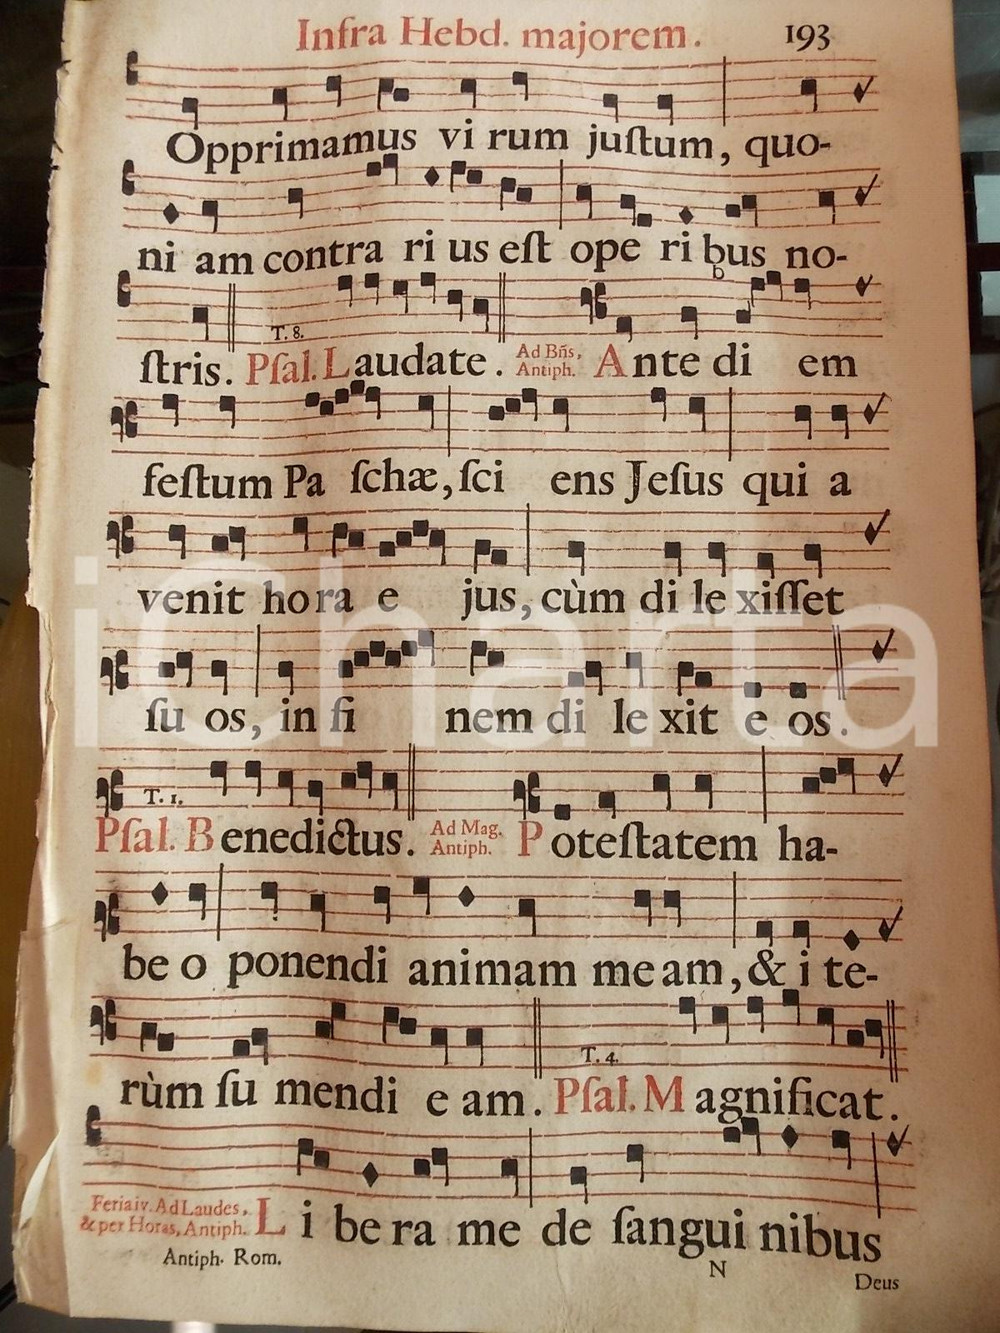 Infra Hebd. majorem. 193
Opprimamus vi rum juſtum, quo-
ni am contra ri us eſt ope ri bus no-
b
T. 8.
ſtris. Pſal. Laudate. Ad Bñs, Antiph. Ante di em
feſtum Pa ſchæ, ſci ens Jeſus qui a
venit hora e jus, cùm di le xiſſet
ſu os, in fi nem di le xit e os.
T. 1.
Pſal. Benedictus. Ad Mag. Antiph. Poteſtatem ha-
be o ponendi animam me am, & i te-
rùm ſu mendi e am. Pſal. Magnificat.
T. 4.
Feria iv. Ad Laudes, & per Horas, Antiph. Li be ra me de ſangui nibus
Antiph. Rom.
N
Deus
iCharta